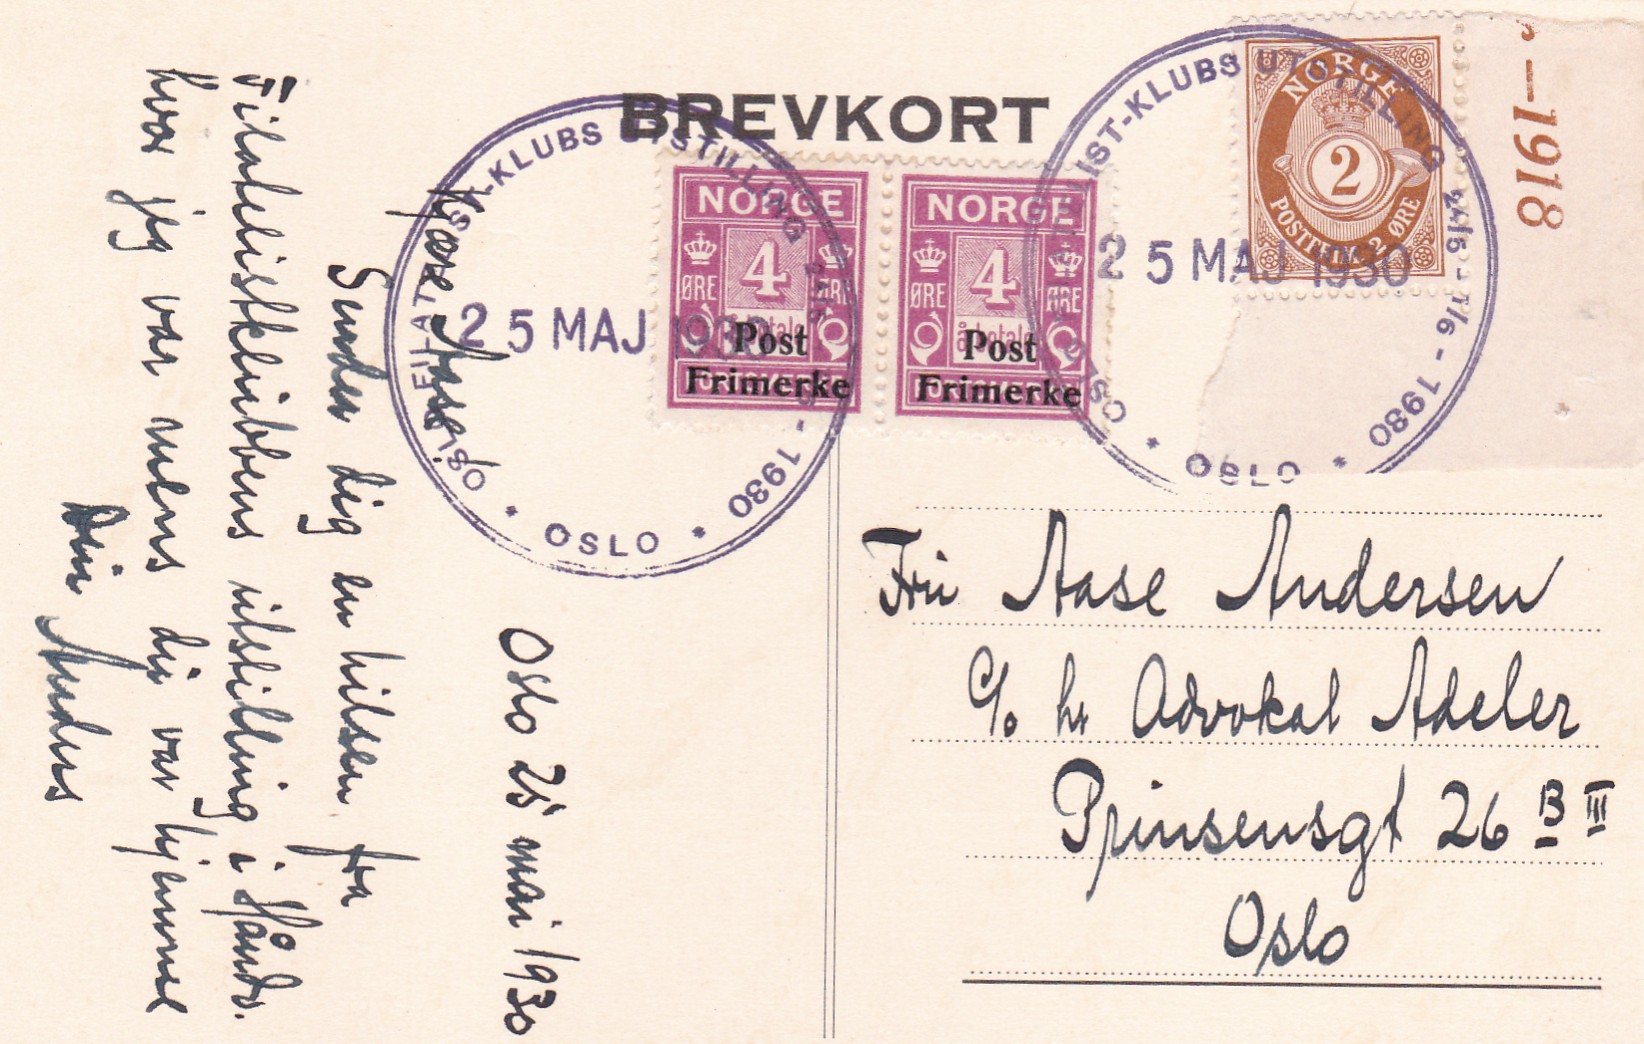 BREVKORT
OSLO FILATELIST-KLUBS UTSTILLING 24/5 - 1/6 - 1930
* OSLO *
25 MAJ 1930
NORGE
4
ØRE ØRE
å betale
Post
Frimerke
NORGE
4
ØRE ØRE
å betale
Post
Frimerke
OSLO FILATELIST-KLUBS UTSTILLING 24/5 - 1/6 - 1930
* OSLO *
25 MAJ 1930
NORGE
2
POSTFRIM. 2 ØRE
-1918
Oslo 25 mai 1930
Kjære Aase!
Sender dig en hilsen fra
Filatelistklubbens utstilling i Håndv.
hvor jeg var mens du var hjemme
Din Anders
Fru Aase Andersen
c/o hr Advokat Adeler
Prinsensgt 26 B III
Oslo